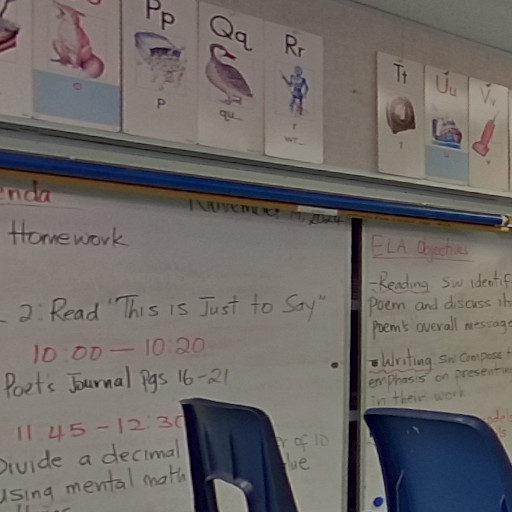 Pp
p
Qq
qu_
Rr
r
wr_
Tt
t
Uu
Vv
enda
Homework
2: Read "This is Just to Say"
10:00 — 10:20
Poet's Journal Pgs 16-21
11:45 - 12:30
Divide a decimal of 10
using mental math
November
ELA Objectives
-Reading SW identif
Poem and discuss
Poem's overall message
Writing SW compose
emphasis on presentin
in their work